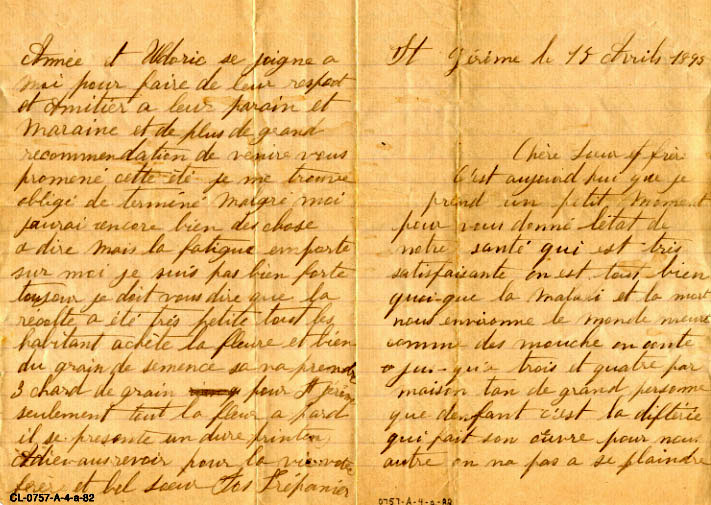 St Jérôme le 15 Avrils 1895
Chère Sœur et frère
C'est aujourd hui que je
prend un petit moment
pour vous donné l'état de
notre santé qui est très
satisfaisante on est tous bien
quoi-que la maladi et la mort
nous environne le monde meure
comme des mouche on conte
jus-qu'a trois et quatre par
maison tan de grand personne
que denfant c'est la diftérie
qui fait son œuvre pour nous
autre on na pas a se plaindre
0757-A-4-a-82
Année et Uldoric se joigne a
moi pour faire de leur respect
et Amitier a leur parain et
Maraine et de plus de grand
recommendation de venire vous
promené cette été je me trouve
obligé de terminé malgré moi
jaurai encore bien des chose
a dire mais la fatigue emporte
sur moi je suis pas bien forte
toujour je doit vous dire que la
récolte a été très petite tout les
habitant achète la fleure et bien
du grain de semence sa va prendre
3 chard de grain pour St Jérôme
seulement tout la fleur a pard
il se présente un dure printen
Adieu aurevoir pour la vie votre
frère et bel sœur Jos Trépanier
CL-0757-A-4-a-82